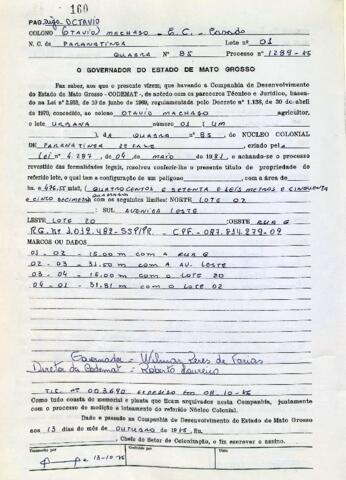 160
PAG. Digo, OCTAVIO
COLONO OTAVIO MACHADO - E.C. - Casado
N. C. de PARANATINGA Lote nº 01
QUADRA Nº 85 Processo nº 1289-86
O GOVERNADOR DO ESTADO DE MATO GROSSO
Faz saber, aos que o presente virem, que havendo a Companhia de Desenvolvimento
do Estado de Mato Grosso - CODEMAT-, de acôrdo com os parecores Técnico e Jurídico, basea-
do na Lei nº 2.933, de 10 de junho de 1969, regulamentada pelo Decreto nº 1.138, de 30 de abril
de 1970, concedido, ao colono OTAVIO MACHADO agricultor,
o lote URBANO número 01 (UM
) da QUADRA nº 85, do NÚCLEO COLONIAL
DE PARANATINGA criado pela
Lei nº 4.287, de 04 de MAIO de 1981, e achando-se o processo
revestido das formalidades legais, resolveu conferir-lhe o presente título de propriedade do
referido lote, o qual tem a configuração de um polígono com a área de
476,55 m2 (QUATROCENTOS E SETENTA E SEIS METROS E CINQUENTA
E CINCO DECIMETROS com os seguintes limites: NORTE LOTE 02
: SUL AVENIDA LESTE
LESTE LOTE 20 :OESTE RUA G
RG. Nº 1.012.482-SSP/PR. - CPF- 087.814.279-09
MARCOS OU DADOS
01 - 02 - 15.00 m com A RUA G
02 - 03 - 31.50 m com A AV. LESTE
03 - 04 - 15.00 m com o LOTE 20
04 - 01 - 31.81 m com o LOTE 02
Governador - Wilmar Peres de Farias
Diretor da Codemat - Roberto Loureiro
TIT. Nº 003690 EXPEDIDO EM 08.10-86
Como tudo consta do memorial e planta que ficam arquivados nesta Companhia, juntamente
com o processo de medição e loteamento do referido Núcleo Colonial.
Dado e passado na Companhia de Desenvolvimento do Estado de Mato Grosso
aos 13 dias do mês de OUTUBRO de 1986, Eu,
, Chefe do Setor de Colonização, o fiz escrever e assino.
Transcrito por
Conferido por
Visto
13-10-86